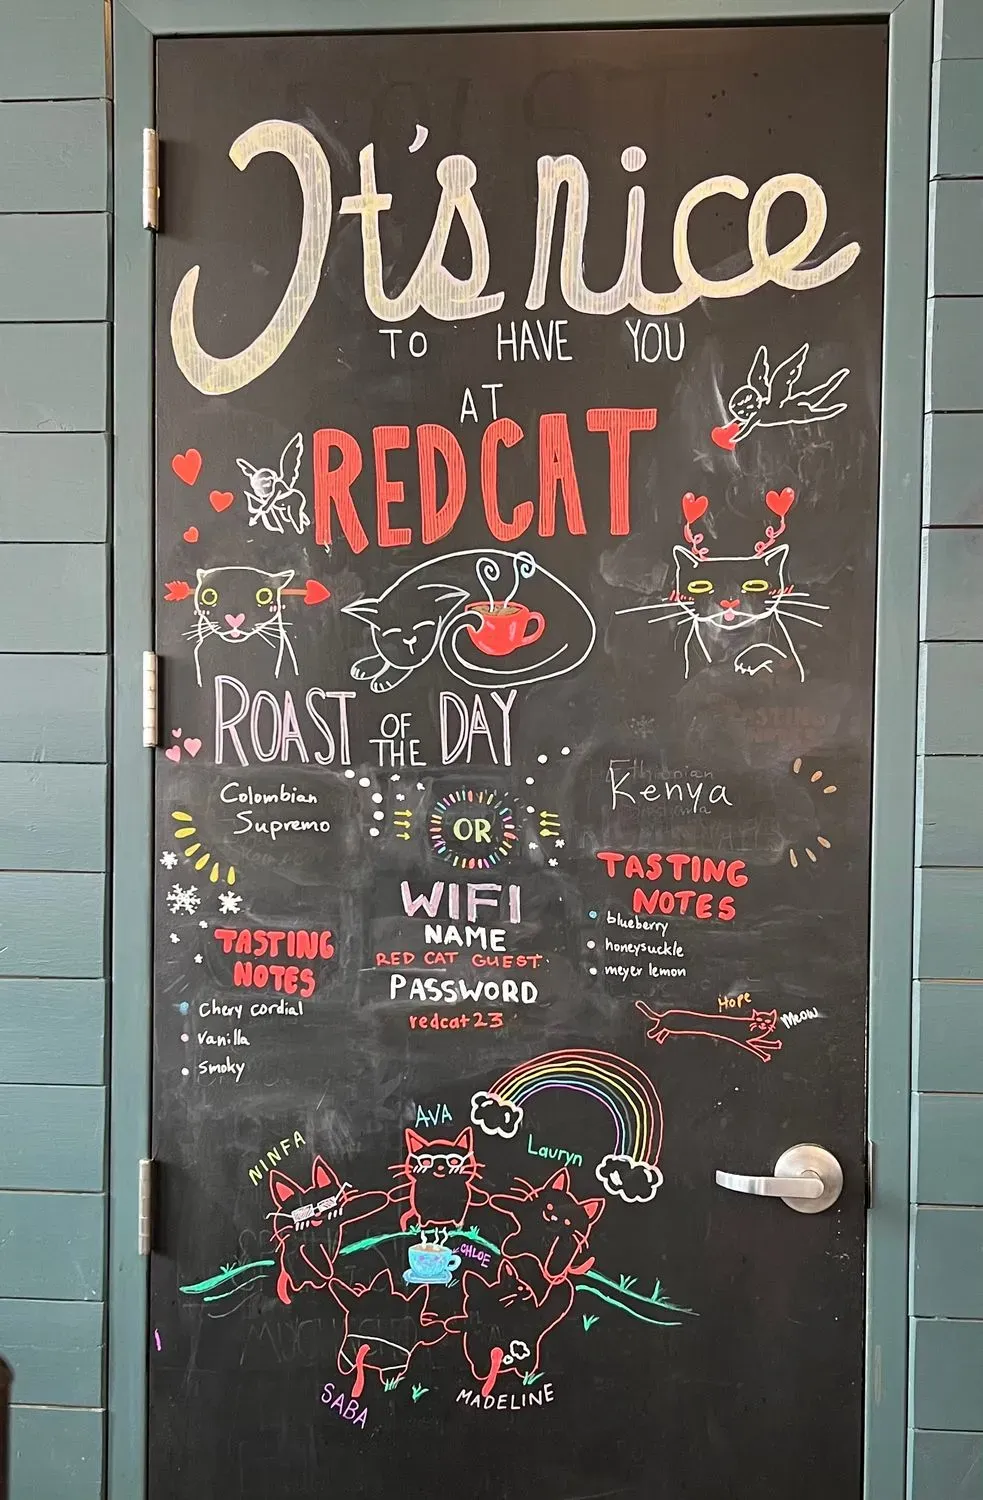 It's nice
TO HAVE YOU
AT
REDCAT
ROAST OF THE DAY
Colombian
Supremo
OR
Kenya
TASTING
NOTES
• Chery cordial
• Vanilla
• Smoky
WIFI
NAME
RED CAT GUEST
PASSWORD
redcat23
TASTING
NOTES
• blueberry
• honeysuckle
• meyer lemon
Hope
Meow
NINFA
AVA
Lauryn
CHLOE
SABA
MADELINE